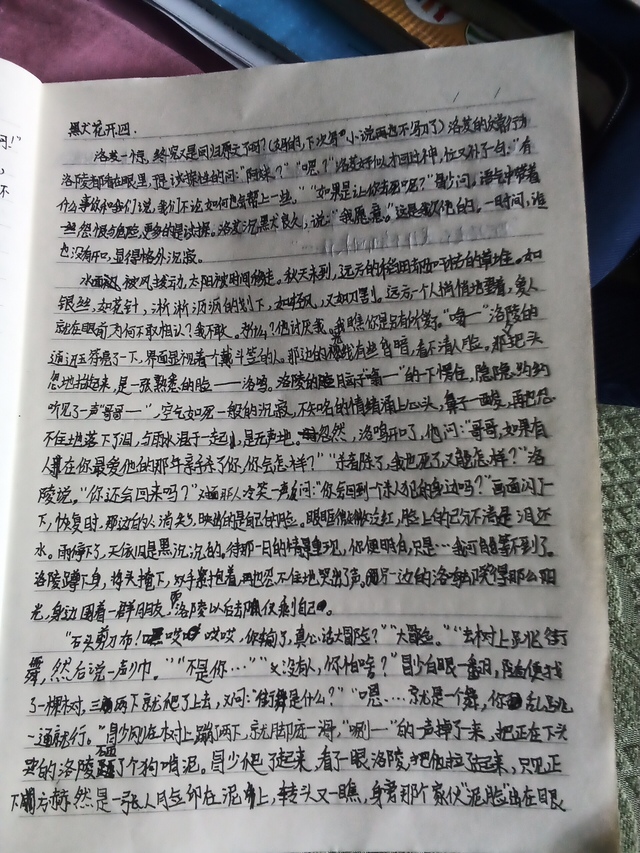 黑犬花开四.
洛芷一愣,终究又是回归原点了吗?(妈的,下次写小说再也不写刀了)洛芷的反常行为
洛陵都看在眼里,于是试探性的问:“阿妹?”“嗯?”洛芷好似才回过神,他又补了句:“有
什么事你和我们说,我们不论如何也会帮上一些。”“如果是让你去死呢?”冒少问,语气中带着
一丝怨恨与危险,更多的是试探。洛芷沉默良久,说:“我愿意。”这是我欠他的。一时间,谁
也没有开口,显得格外沉寂。
水面被风拨动,太阳被时间推走。秋天来到,远方的稻田 的草堆。如
银丝,如花针,淅淅沥沥的划下,如 ,又如 。远方一个人悄悄地望着,爱人
就在眼前为何不敢相认?我不敢。为什么?他讨厌我。我瞧你是另有所爱。“嗡—”洛陵的
通讯玉符亮了一下,界面显视着个戴斗笠的人。那边的 有些昏暗,看不清人脸。那 把头
忽地抬起来,是一张熟悉的脸——洛鸣。洛陵的脸 “嗡—”的一下愣住,隐隐约约
听见了一声“哥哥——”,空气如死一般的沉寂,不知名的情绪涌上心头,鼻子一酸,再也忍
不住地落下了泪,与雨水混于一起,是无声地。忽然,洛鸣开口了,他问:“哥哥,如果有
人在你最爱他的那年亲手杀了你,你会怎样?”“杀都杀了,我也死了,又能怎样?”洛
陵说。“你还会回来吗?”对面那人冷笑一声反问:“你会回到一个杀人犯的身边吗?”画面闪了一
下,恢复时,那边的人消失了,映出的是自己的脸。眼眶微微泛红,脸上的已分不清是泪还
水。雨停下了,天依旧是黑沉沉的。待那一日的情景重现,你便明白,只是…我可能等不到了。
洛陵蹲下身,将头掩下,双手紧抱着,再也忍不住地哭出了声。而另一边的洛 笑得那么阳
光,身边围着一群朋友,洛陵以后去哪儿 到自己。
“石头剪刀布!嘿 哎哎,你输了,真心话大冒险?”“大冒险。”“去树上跳街
舞,然后说一声 。”“不是你…”“又没有人,你怕啥?”冒少白眼一翻,随便找
了一棵树,三两下就爬了上去,又问:“街舞是什么?”“嗯…就是一个舞,你乱跳
一通就行。”冒少刚在树上蹦了两下,就脚底一滑,“唰—”的一声掉了下来,把正在下头
哭的洛陵砸了个狗啃泥。冒少爬了起来,看了一眼洛陵,把他拉了起来,只见正
下方赫然是一张人脸印在泥上,转头又一瞧,身旁那个家伙“泥脸”出在眼